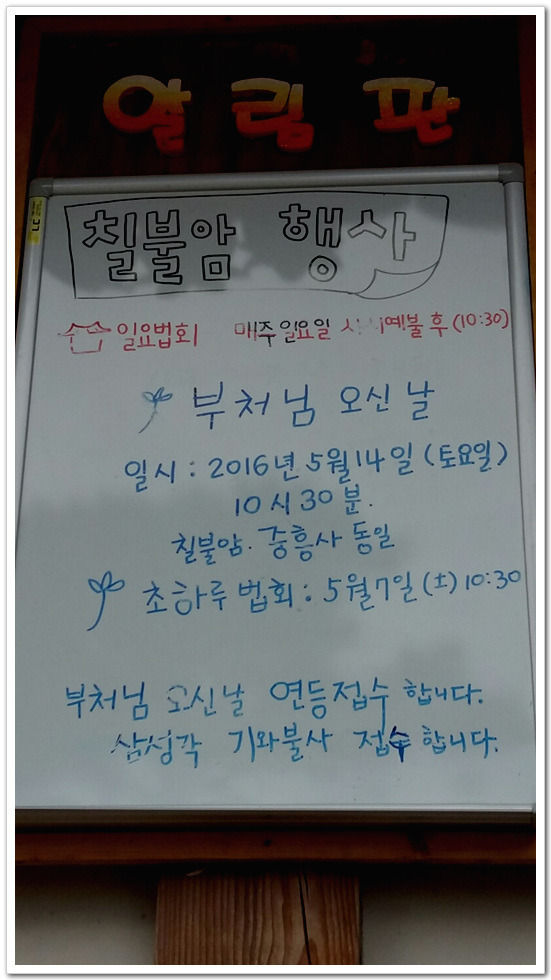 알림판
칠불암 행사
순순 일요법회 매주 일요일 예불 후 (10:30)
부처님 오신 날
일시 : 2016년 5월 14일 (토요일)
10시 30분.
칠불암. 중흥사 동일
초하루 법회 : 5월 7일 (土) 10:30
부처님 오신날 연등접수 합니다.
삼성각 기와불사 접수 합니다.